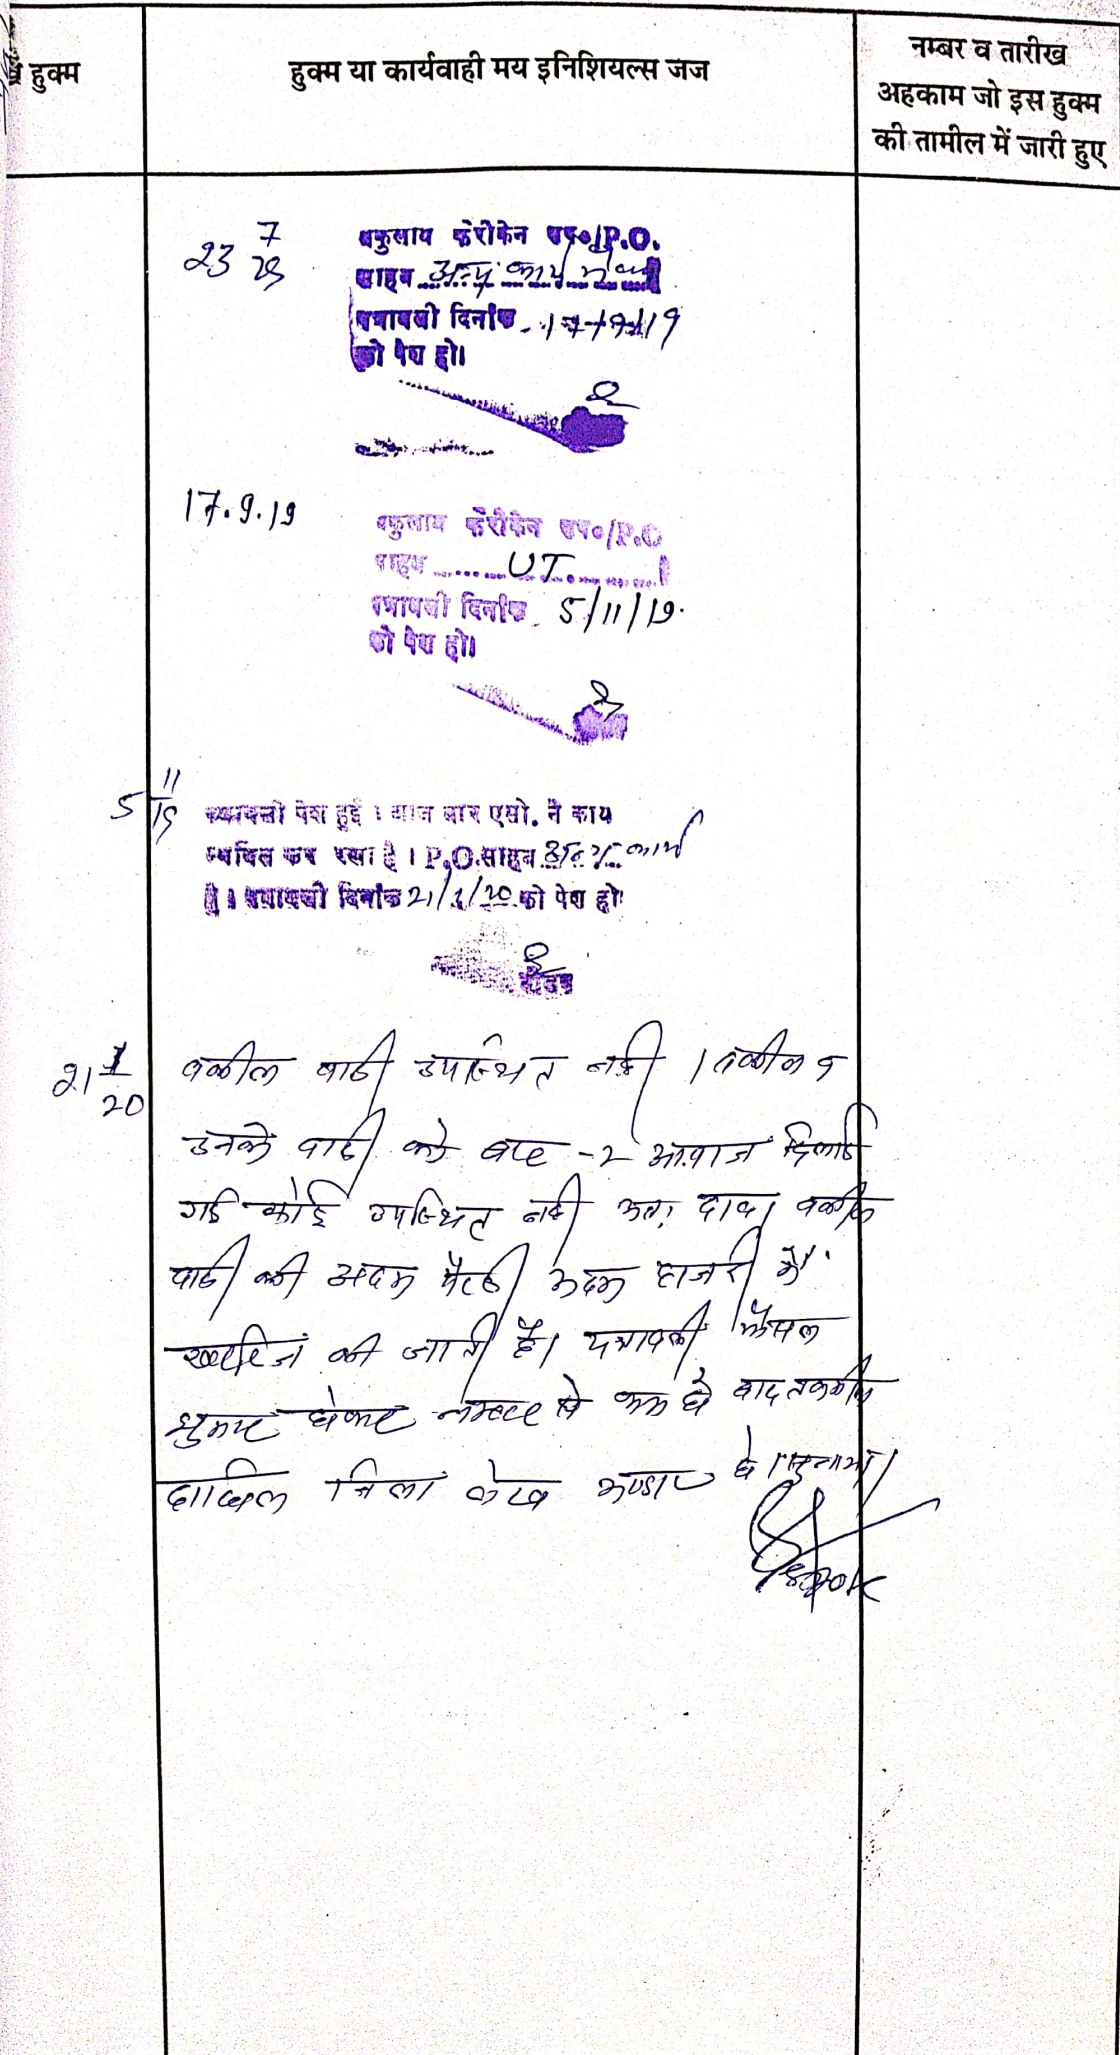 हुक्म
हुक्म या कार्यवाही मय इनिशियल्स जज
नम्बर व तारीख
अहकाम जो इस हुक्म
की तामील में जारी हुए
23 7
वकुलाय फरीकेन उप०/P.O.
साहब अन्य कार्य में
पत्रावली दिनांक 17/9/19
को पेश हो।
17.9.19
वकुलाय फरीकेन उप०/P.O
साहब UT
पत्रावली दिनांक 5/11/19.
को पेश हो।
5 11/19
पत्रावली पेश हुई । आज बार एसो. ने कार्य
स्थगित कर रखा है । P.O. साहब अन्य कार्य
है । पत्रावली दिनांक 21/1/20 को पेश हो
रीडर
21 1/20
वकील वादी उपस्थित नहीं । वकील व
उनके वादी को बार -२ आवाज दिलाई
गई कोई उपस्थित नहीं अतः दावा वकील
वादी की अदम पैरवी अदम हाजरी में
खारिज की जाती है। पत्रावली फैसल
शुमार होकर नम्बर से कम हो बाद तकमील
दाखिल जिला लेख भण्डार हो ।